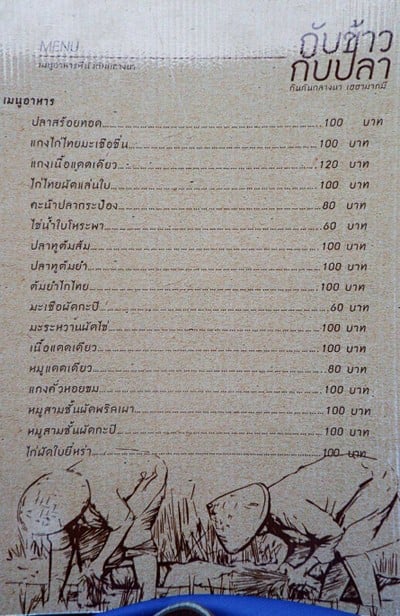 MENU
กับข้าว
กับปลา
กินกันกลางนา เฮฮามากมี
เมนูอาหาร
ปลาสร้อยทอด 100 บาท
แกงไก่ไทยมะเขือขื่น 100 บาท
แกงเนื้อแดดเดียว 120 บาท
ไก่ไทยผัดแล่นใบ 100 บาท
คะน้าปลากระป๋อง 80 บาท
ไข่น้ำใบโหระพา 60 บาท
ปลาทูต้มส้ม 100 บาท
ปลาทูต้มยำ 100 บาท
ต้มยำไก่ไทย 100 บาท
มะเขือผัดกะปิ 60 บาท
มะระหวานผัดไข่ 100 บาท
เนื้อแดดเดียว 100 บาท
หมูแดดเดียว 80 บาท
แกงคั่วหอยขม 100 บาท
หมูสามชั้นผัดพริกเผา 100 บาท
หมูสามชั้นผัดกะปิ 100 บาท
ไก่ผัดใบยี่หร่า 100 บาท